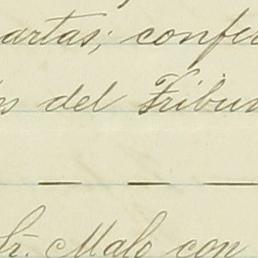 artas; confer
s del Tribun
Sr. Malo con